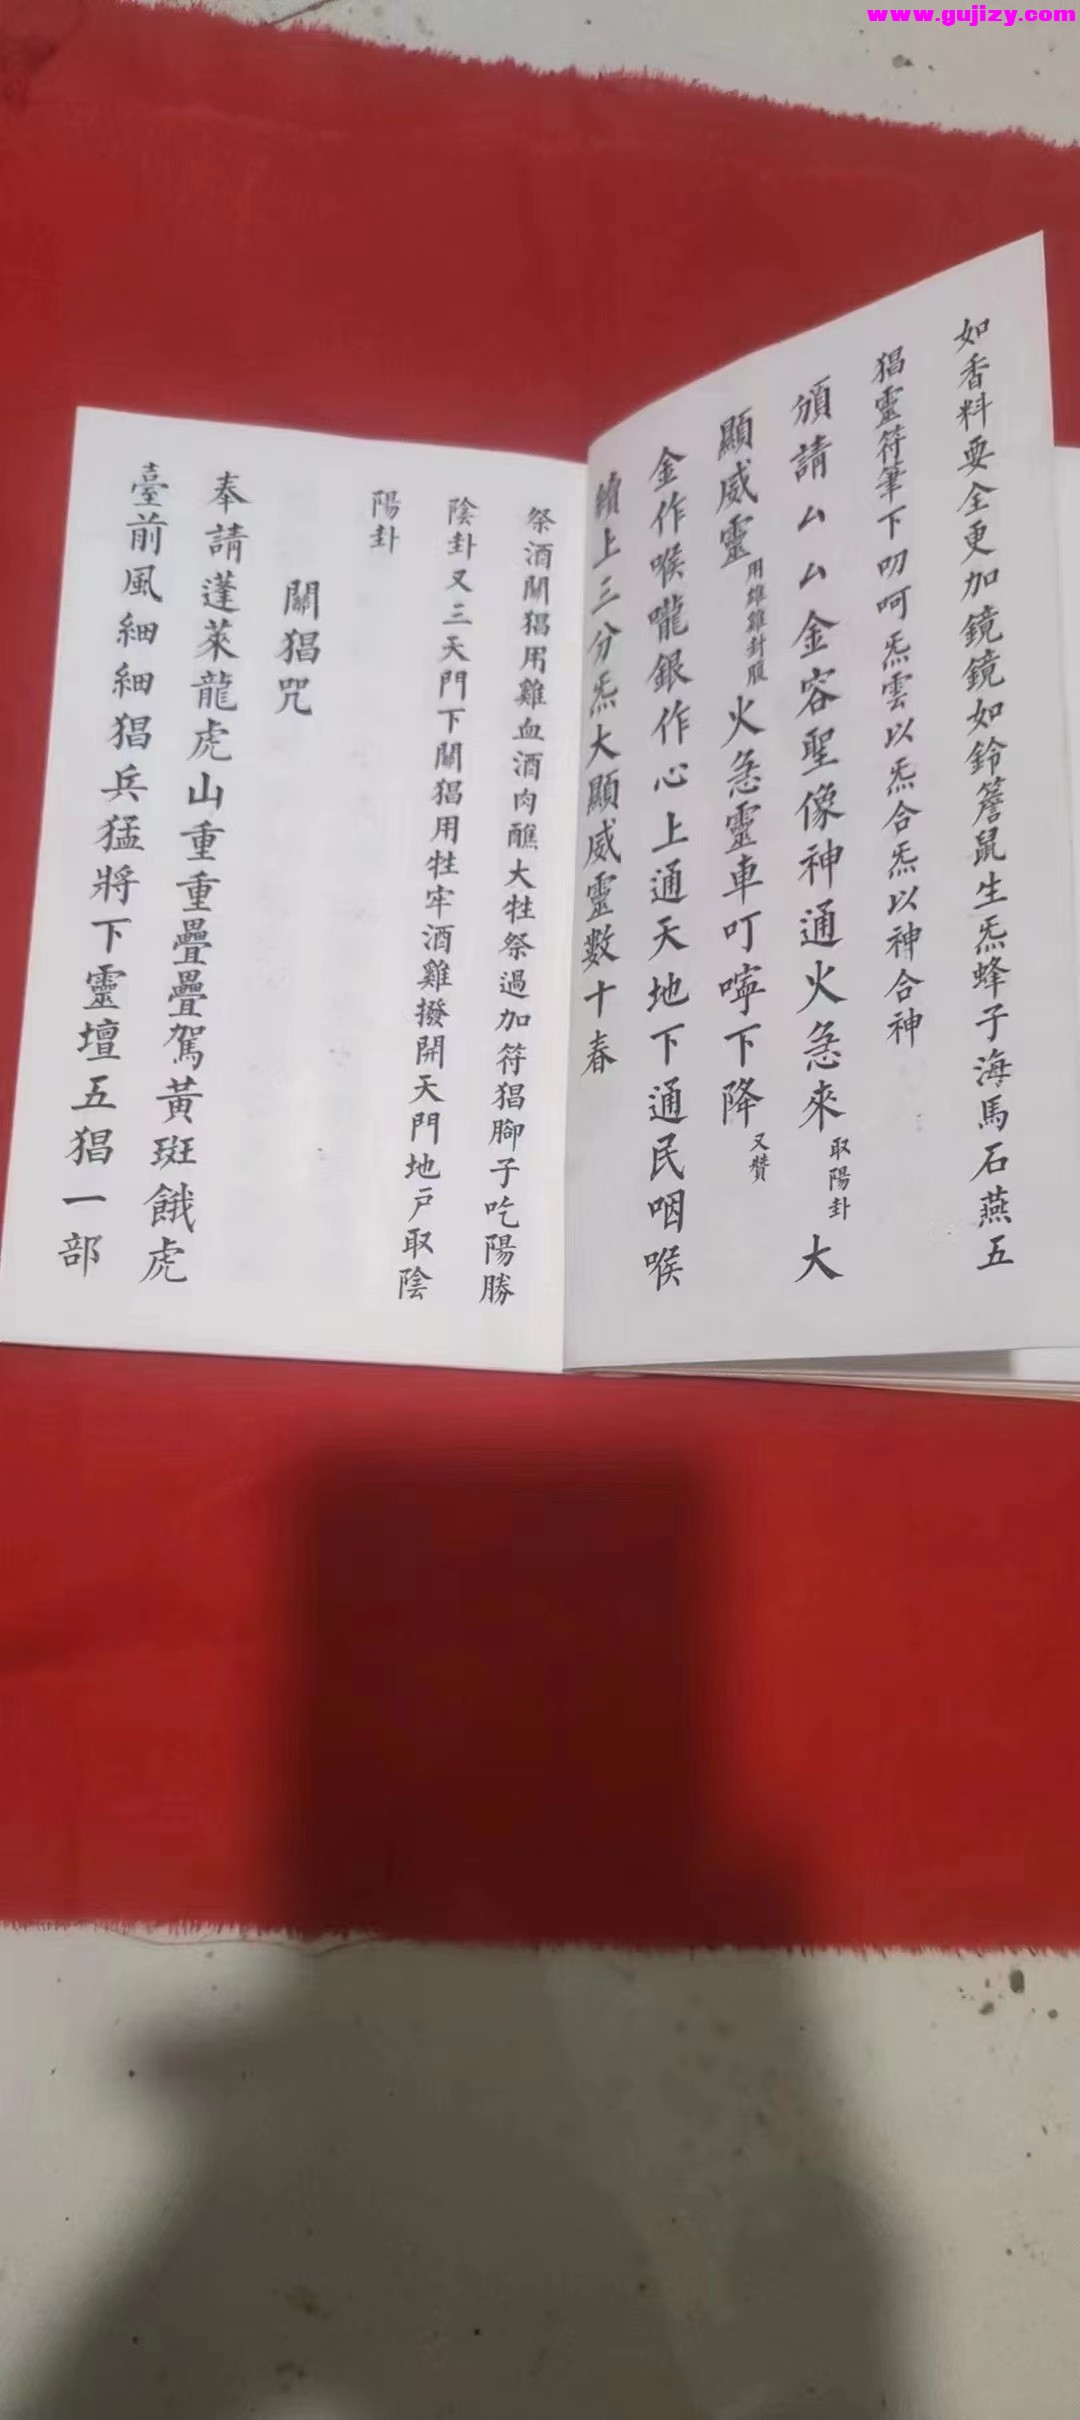 www.gujizy.com
如香料要全更加鏡鏡如鈴簷鼠生炁蜂子海馬石燕五
猖靈符筆下叨呵炁雲以炁合炁以神合神
頒請厶厶金容聖像神通火急來取陽卦大
顯威靈用雄雞封服火急靈車叮嚀下降又贊
金作喉嚨銀作心上通天地下通民咽喉
續上三分炁大顯威靈數十春
祭酒關猖用雞血酒肉醮大牲祭過加符猖腳子吃陽勝
陰卦又三天門下關猖用牲牢酒雞撥開天門地户取陰
陽卦
關猖咒
奉請蓬萊龍虎山重重疊疊駕黃斑餓虎
臺前風細細猖兵猛將下靈壇五猖一部